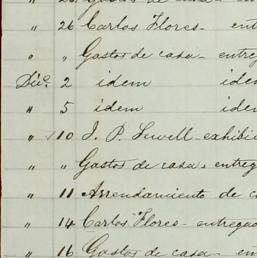 " 26 Carlos Flores -
" " Gastos de casa - entreg
Dic. 2 idem
" 5 idem
" 10 J. P. Sewell - exhibi
" " Gastos de casa - entreg
" 11 Arrendamiento de c
" 14 Carlos Flores - entregad
" 16 Gastos de casa -